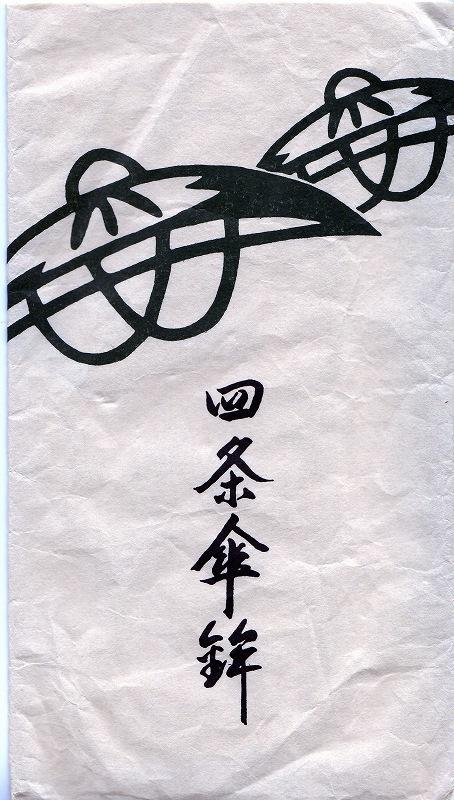 四条傘鉾